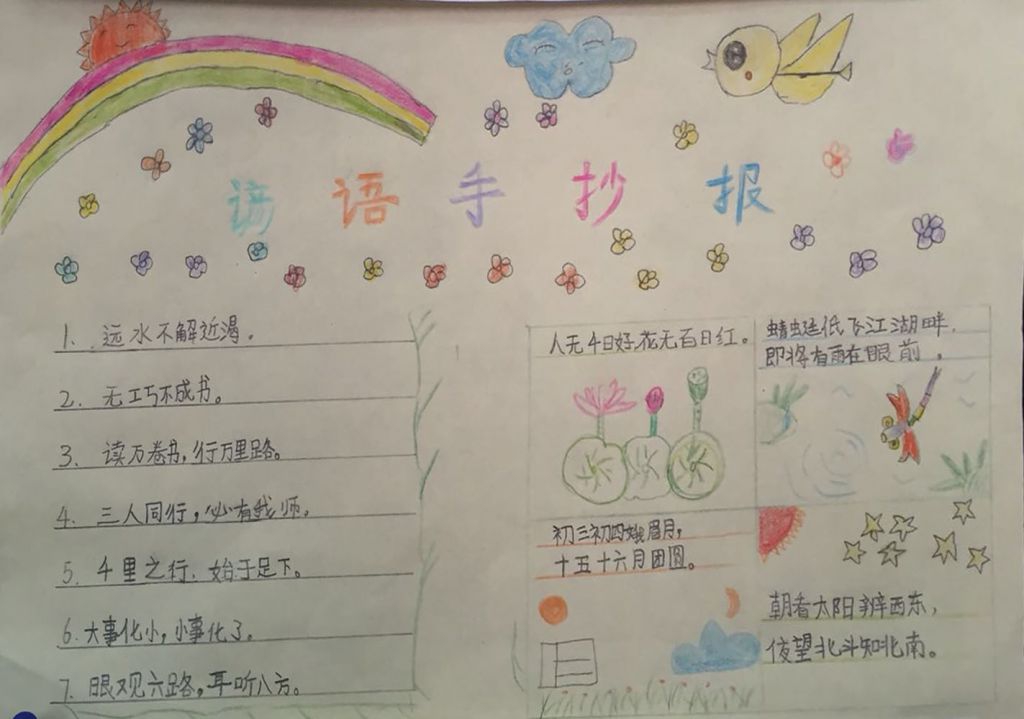 谚语手抄报
1. 远水不解近渴。
2. 无巧不成书。
3. 读万卷书,行万里路。
4. 三人同行,必有我师。
5. 千里之行,始于足下。
6. 大事化小,小事化了。
7. 眼观六路,耳听八方。
人无千日好,花无百日红。
蜻蜓低飞江湖畔,
即将有雨在眼前。
初三初四娥眉月,
十五十六月团圆。
朝看太阳辨西东,
夜望北斗知北南。